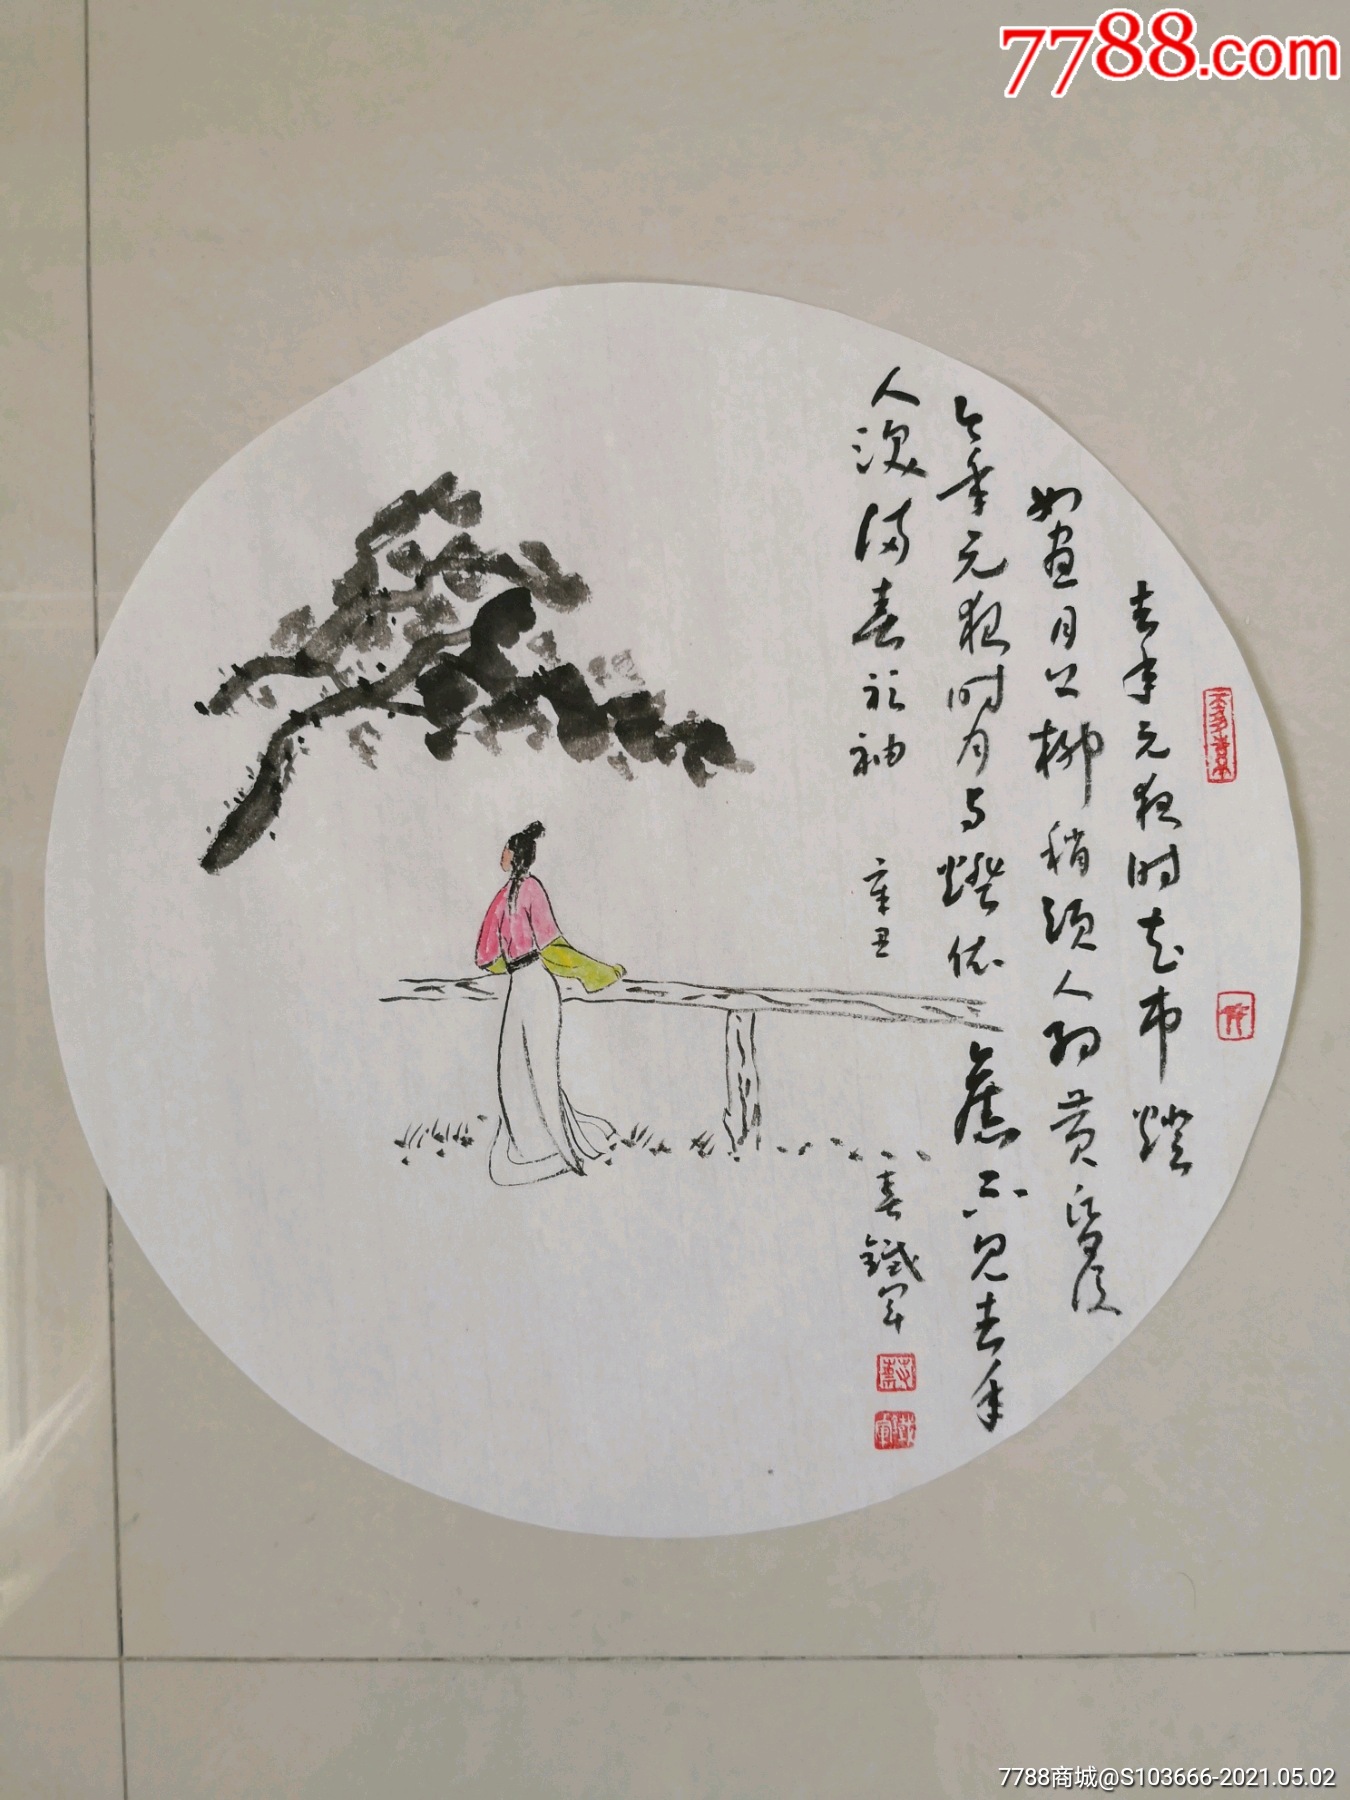 7788.com
去年元夜时花市燈
如昼月上柳稍头人约黄昏後
今年元夜时月与燈依舊不见去年
人淚满春衫袖 辛丑 春 鐵军
7788商城@S103666-2021.05.02